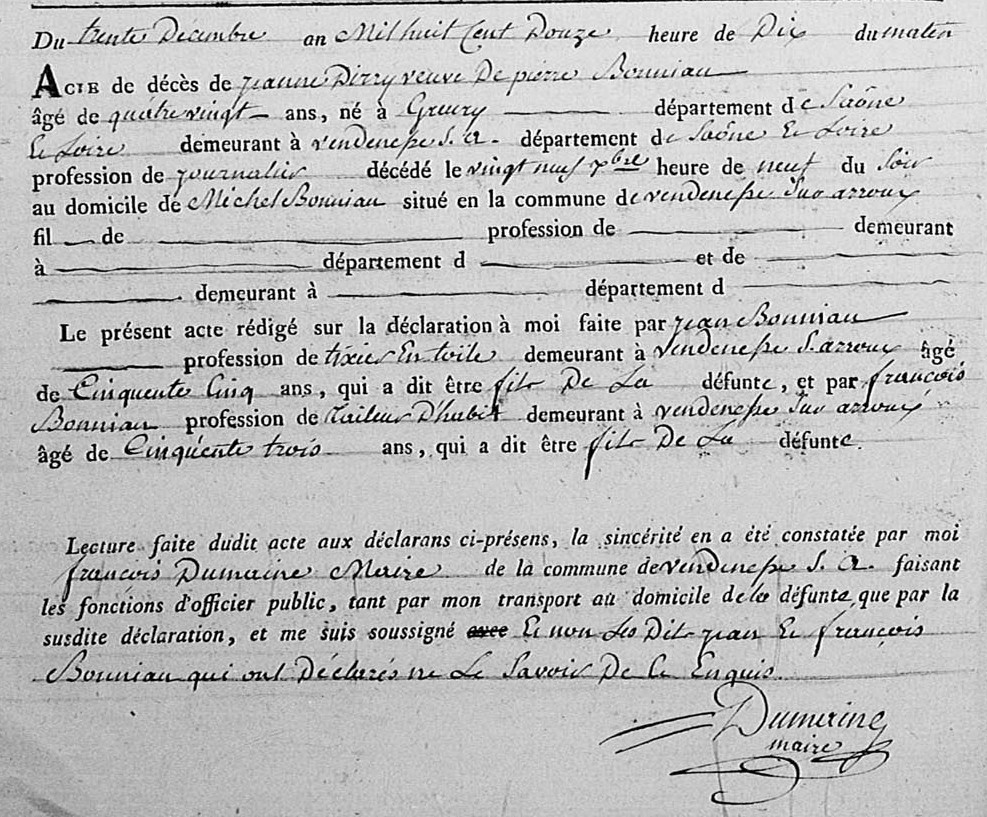 Du trente Décembre an Mil huit Cent Douze heure de Dix du matin
ACTE de décès de jeanne Dirry veuve De pierre Bonniau
âgé de quatre vingt ans, né à Grury département de Saône
Et Loire demeurant à vendenesse S. A. département de Saône Et Loire
profession de journalier décédé le vingt neuf xbre heure de neuf du Soir
au domicile de Michel Bonniau situé en la commune de vendenesse Sur arroux
fil de profession de demeurant
à département d et de
demeurant à département d
Le présent acte rédigé sur la déclaration à moi faite par jean Bonniau
profession de tixier En toile demeurant à vendenesse S. arroux âgé
de Cinquente Cinq ans, qui a dit être fils De La défunte, et par françois
Bonniau profession de tailleur D'habit demeurant à vendenesse Sur arroux
âgé de Cinquente trois ans, qui a dit être fils De La défunte.
Lecture faite dudit acte aux déclarans ci-présens, la sincérité en a été constatée par moi
françois Dumaine Maire de la commune de vendenesse S. A. faisant
les fonctions d'officier public, tant par mon transport au domicile de la défunte que par la
susdite déclaration, et me suis soussigné avec Et non Les Dits jean Et françois
Bonniau qui ont Déclarés ne Le Savoir De Ce Enquis.
Dumaine
maire